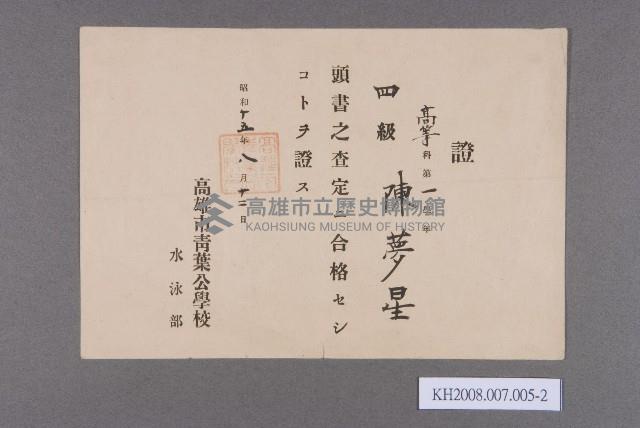 證
高等科第一學年
四級 陳夢星
頭書之査定ニ合格セシ
コトヲ證ス
昭和十五年八月十二日
高雄市靑葉公學校
水泳部
高雄市立歷史博物館
KAOHSIUNG MUSEUM OF HISTORY
KH2008.007.005-2